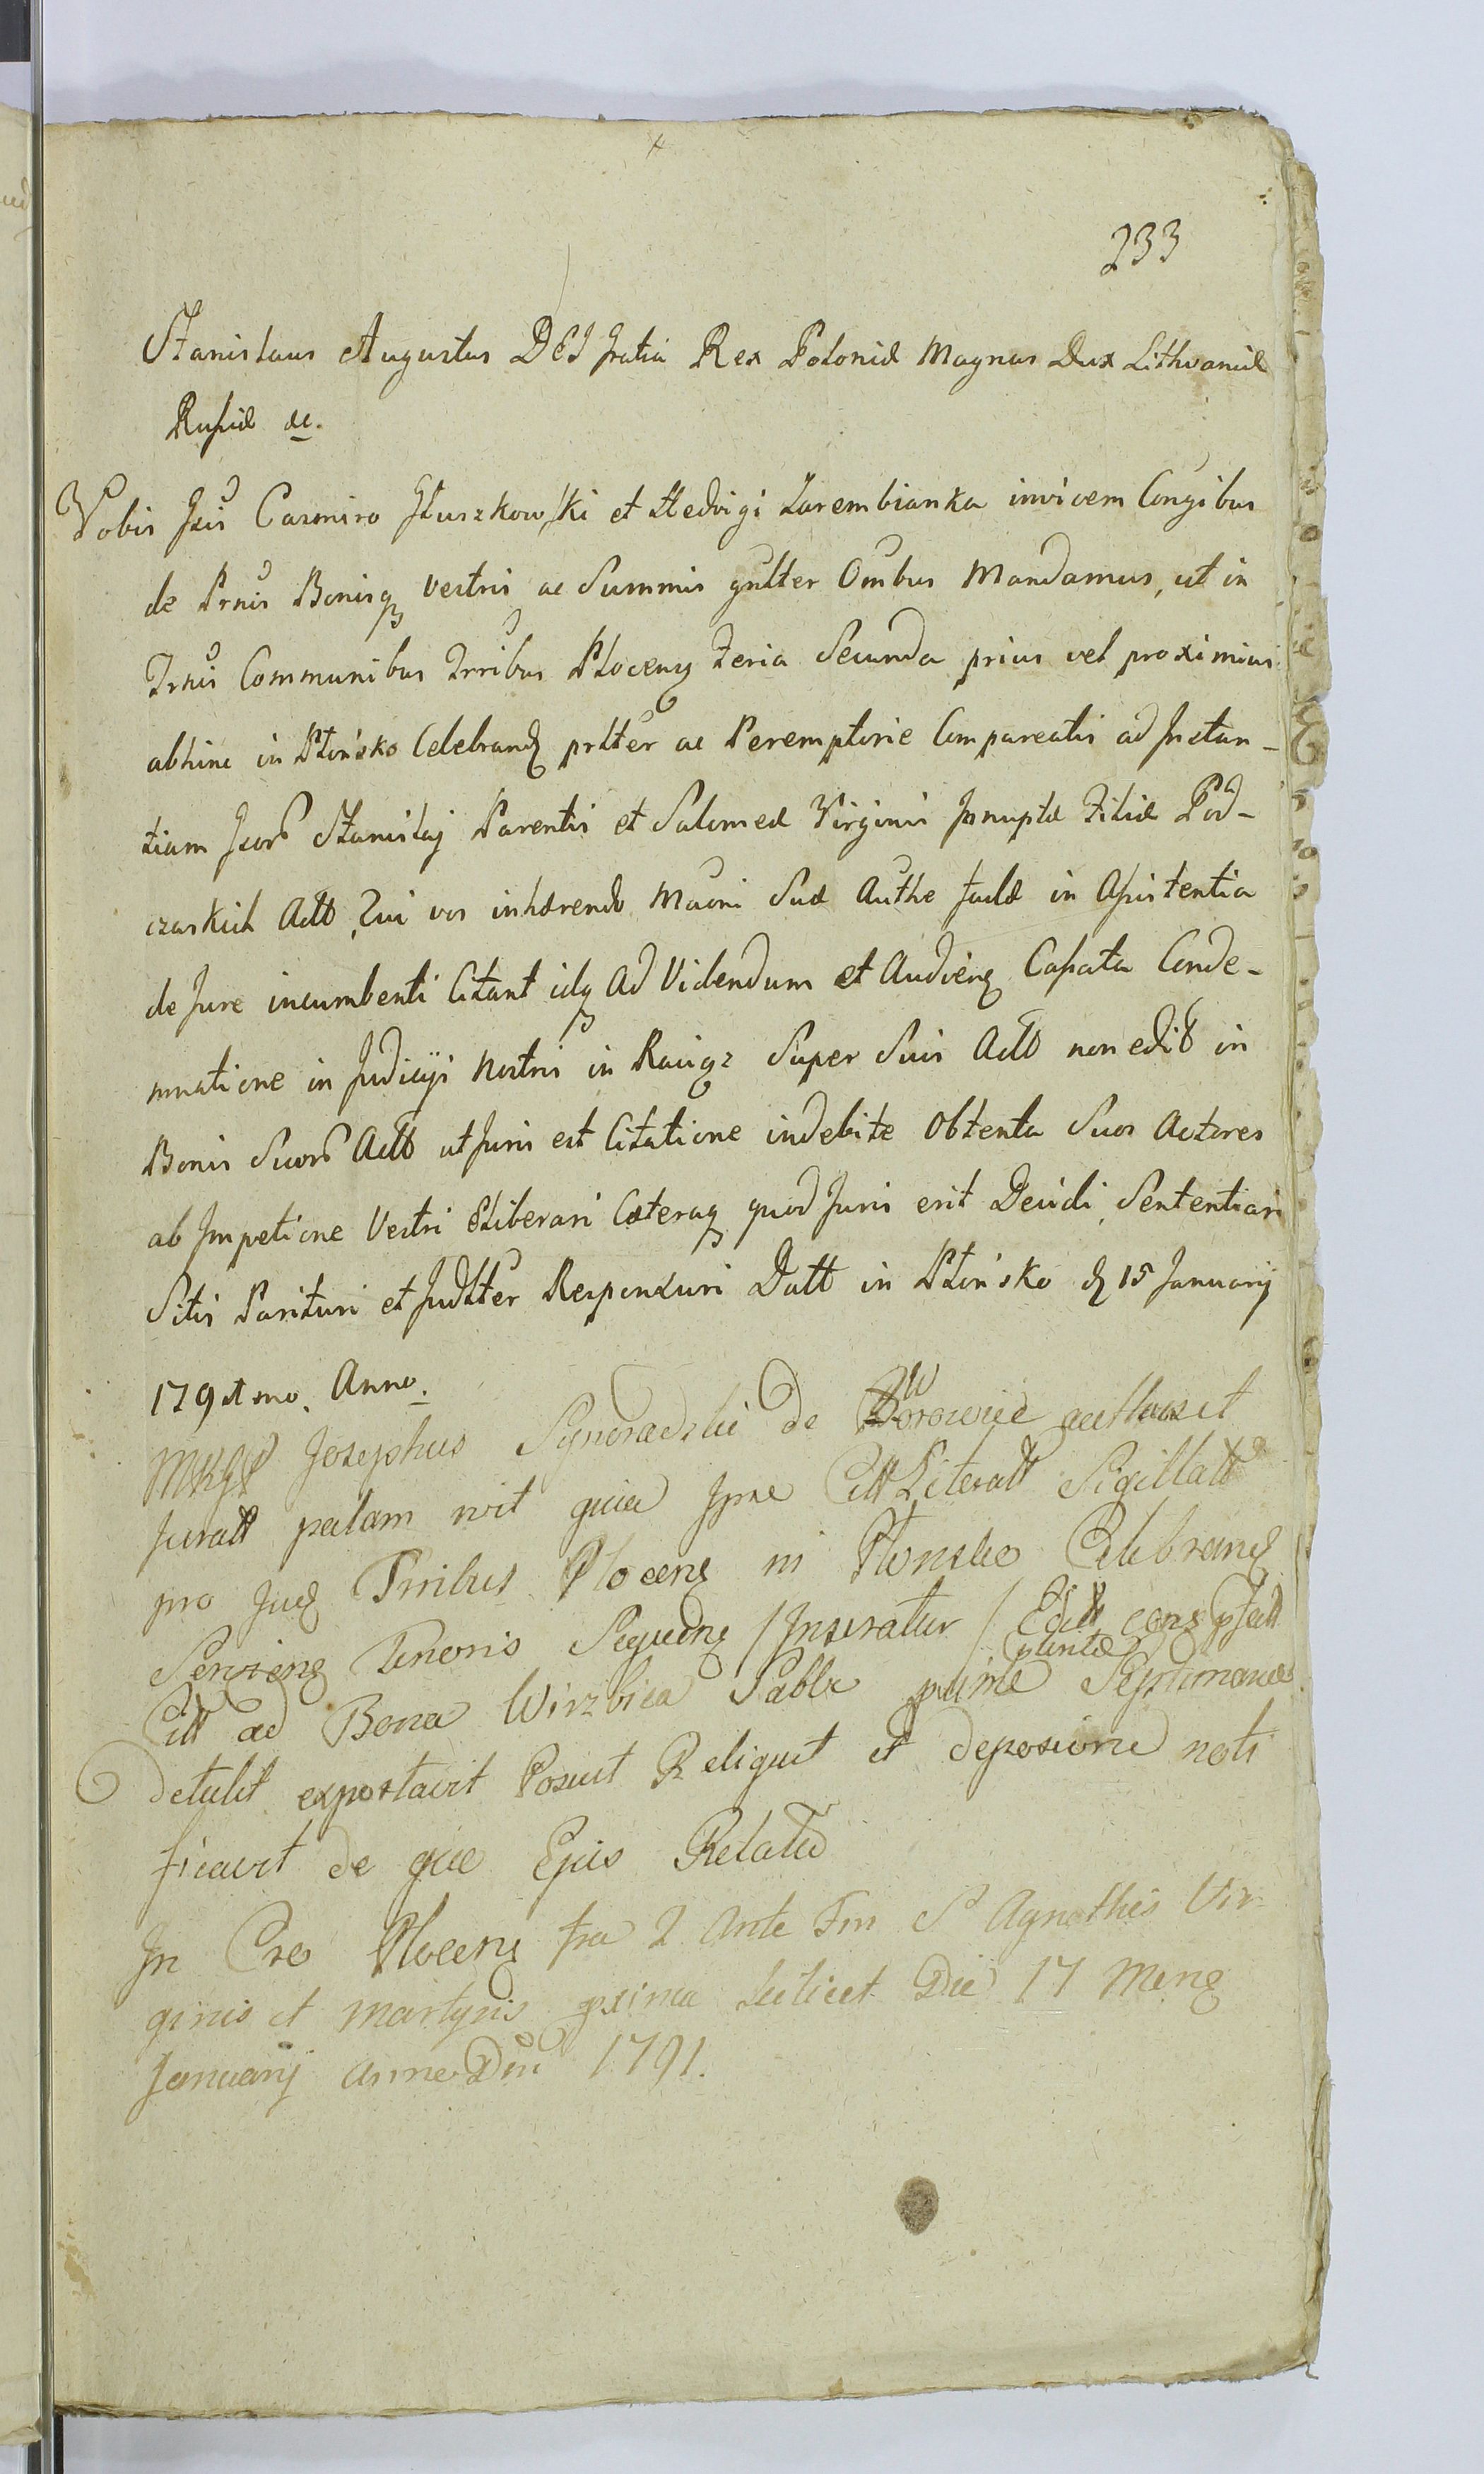 233
Stanislaus Augustus DEI Gratia Rex Poloniæ Magnus Dux Lithvaniæ
Russiæ &c.
Vobis Gsis Casmiro Głuszkowski et Hedvigi Zarembianka invicem Congibus
de Prnis Bonisq vestris ac Summis gnlter Ombus Mandamus, ut in
Trnis Communibus Trribus Plocens Feria Secunda prius vel proximius
abhinc in Płońsko Celebrand prlter ac Peremptorie Compareatis ad Instan-
tiam Gsor Stanislaj Parentis et Salomeæ Virginis Innuptæ Filiæ Pod-
czaskich Actt, Qui vos inhærendo Maoni Suæ Authe factæ in Assistentia
de Jure incumbenti Citant idq Ad Videndum et Audiend Cassata Conde-
mnatione in Judicijs nostris in Raciąż Super Suis Actt non edit in
Bonis Suor Actt ut Juris est Citatione indebite Obtenta Suos Actores
ab Impetione Vestri Eliberari Cæteraq quod Juris erit Decidi, Sententiari
Sitis Parituri et Judlter Responsuri Datt in Płońsko d 15 Januarij
1791mo. Anno.
Josephus de authen et
Juratt palam rcit quia Ipse Citt Literatt Sigillatt
pro Jud Trribus Plocens in Płonsko Celebrand
Serviens Tenoris Sequens / Inseratur / Editt
Citt ad Bona Wirzbica Sabbo Septimanæ
detulit exportavit Posuit Reliquit et deposione noti
ficavit de quo Ejus Relatio
In Cro Plocens fra 2 Ante Fm S Agnethis Vir-
ginis et Martyris pxima scilicet Die 17 Mens
Januarij Anno Dni 1791.